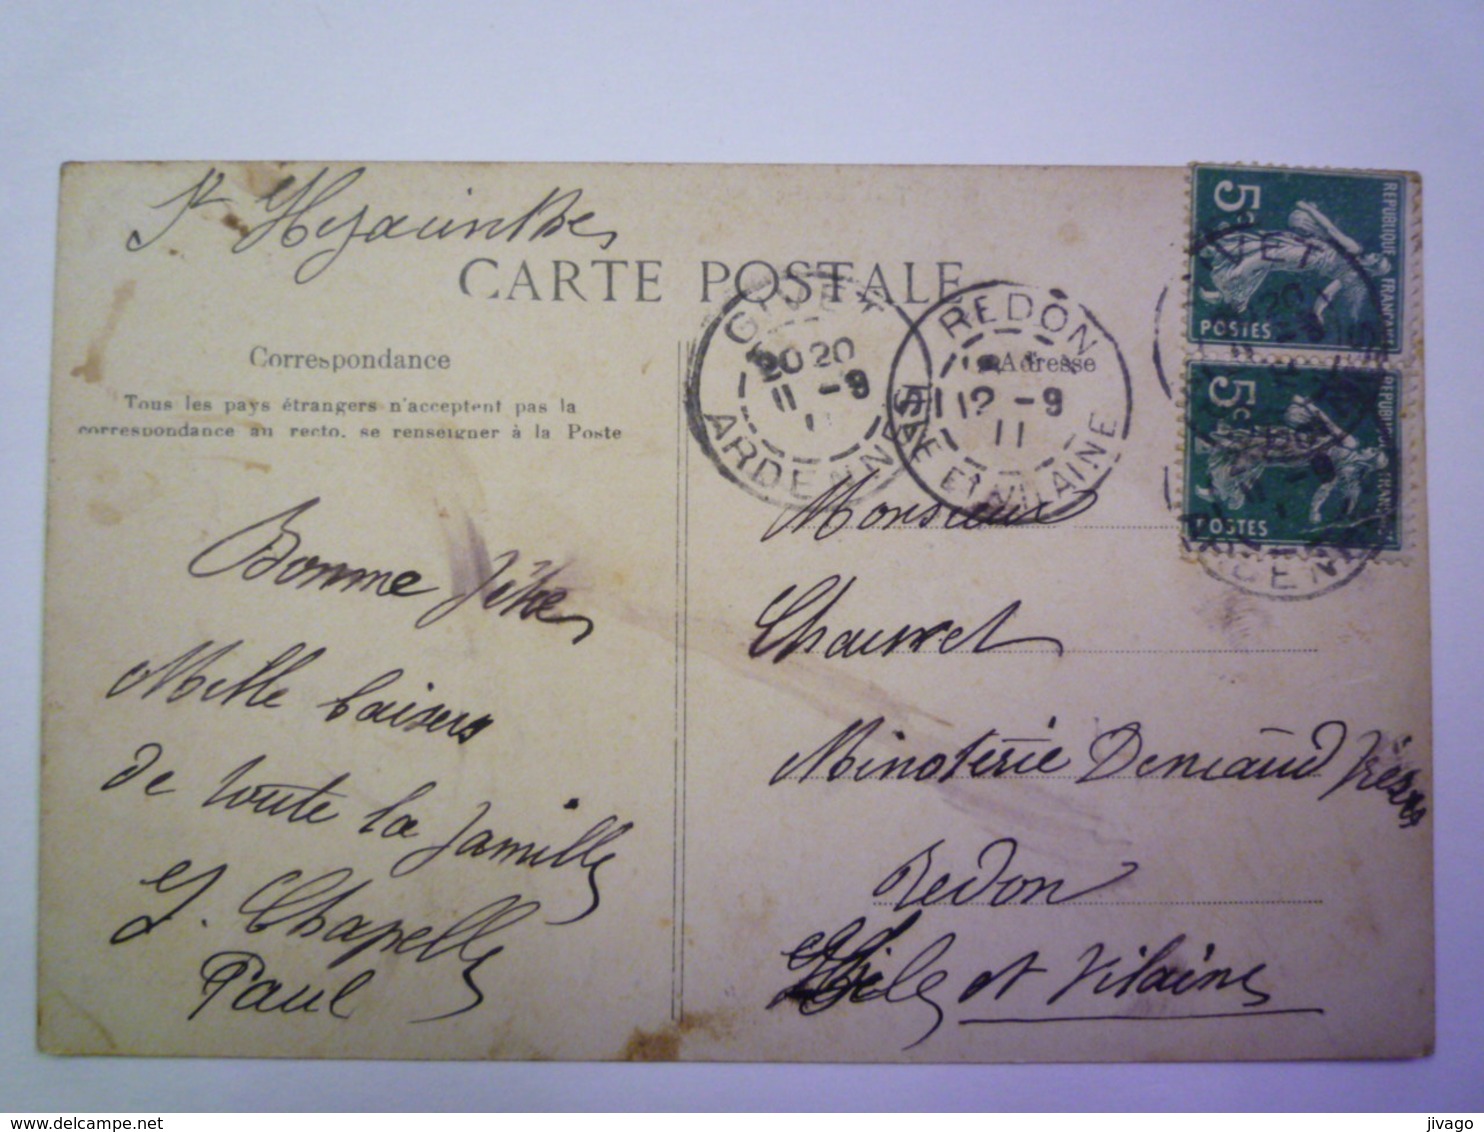 St Hyacinthe
CARTE POSTALE
Correspondance
Adresse
Tous les pays étrangers n'acceptent pas la
correspondance au recto, se renseigner à la Poste
GIVET
20 20
11 -9
11
ARDENNES
REDON
12 -9
11
ILLE ET VILAINE
5c
REPUBLIQUE FRANÇAISE
POSTES
5c
REPUBLIQUE FRANÇAISE
POSTES
GIVET
ARDENNES
Bonne fête
Mille baisers
de toute la famille
Chapelle
Paul
Monsieur
Chauvet
Minoterie Deniaud frères
Redon
Ille et Vilaine
www.delcampe.net
jivago